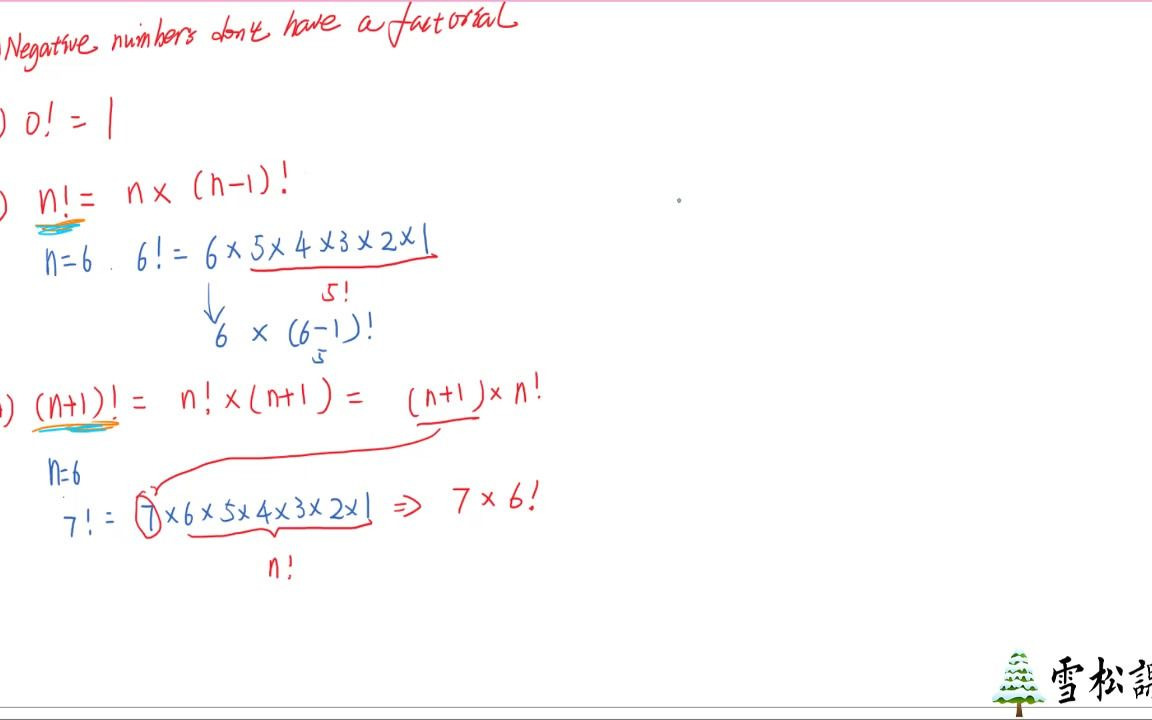 Negative numbers don't have a factorial
) 0! = 1
) n! = n × (n-1)!
n=6 . 6! = 6 × 5 × 4 × 3 × 2 × 1
5!
6 × (6-1)!
5
) (n+1)! = n! × (n+1) = (n+1) × n!
n=6
7! = 7 × 6 × 5 × 4 × 3 × 2 × 1 ⇒ 7 × 6!
n!
雪松課